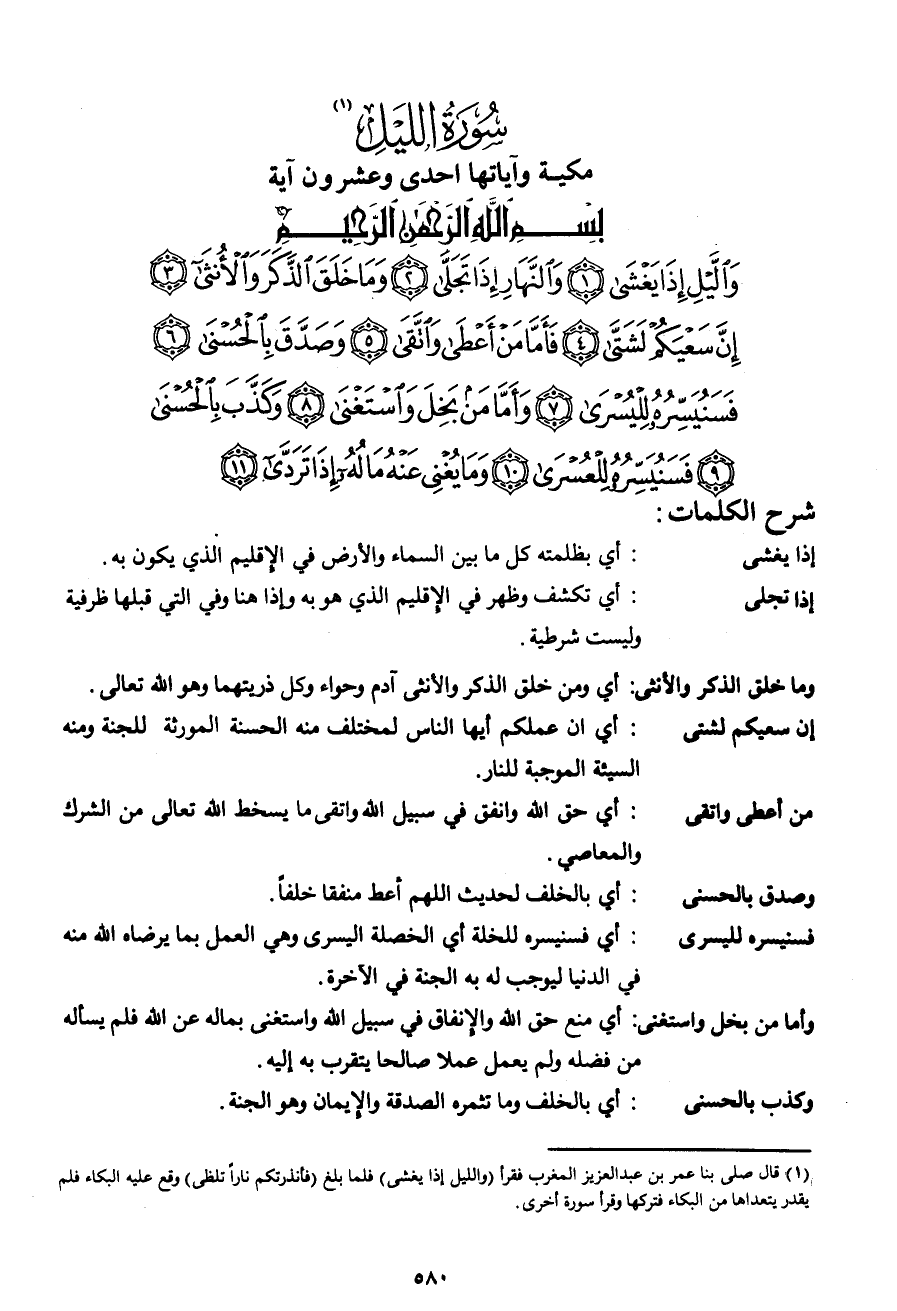 سُورَةُ اللَّيْلِ (١)
مكية وآياتها احدى وعشرون آية
بِسْمِ اللَّهِ الرَّحْمَٰنِ الرَّحِيمِ
وَالَّيْلِ إِذَا يَغْشَىٰ ﴿١﴾ وَالنَّهَارِ إِذَا تَجَلَّىٰ ﴿٢﴾ وَمَا خَلَقَ الذَّكَرَ وَالْأُنثَىٰٓ ﴿٣﴾
إِنَّ سَعْيَكُمْ لَشَتَّىٰ ﴿٤﴾ فَأَمَّا مَنْ أَعْطَىٰ وَاتَّقَىٰ ﴿٥﴾ وَصَدَّقَ بِالْحُسْنَىٰ ﴿٦﴾
فَسَنُيَسِّرُهُۥ لِلْيُسْرَىٰ ﴿٧﴾ وَأَمَّا مَنۢ بَخِلَ وَاسْتَغْنَىٰ ﴿٨﴾ وَكَذَّبَ بِالْحُسْنَىٰ
﴿٩﴾ فَسَنُيَسِّرُهُۥ لِلْعُسْرَىٰ ﴿١٠﴾ وَمَا يُغْنِي عَنْهُ مَالُهُۥٓ إِذَا تَرَدَّىٰٓ ﴿١١﴾
شرح الكلمات :
إذا يغشى : أي بظلمته كل ما بين السماء والأرض في الإقليم الذي يكون به .
إذا تجلى : أي تكشف وظهر في الإقليم الذي هو به وإذا هنا وفي التي قبلها ظرفية
وليست شرطية .
وما خلق الذكر والأنثى: أي ومن خلق الذكر والأنثى آدم وحواء وكل ذريتهما وهو الله تعالى .
إن سعيكم لشتى : أي ان عملكم أيها الناس لمختلف منه الحسنة المورثة للجنة ومنه
السيئة الموجبة للنار.
من أعطى واتقى : أي حق الله وانفق في سبيل الله واتقى ما يسخط الله تعالى من الشرك
والمعاصي .
وصدق بالحسنى : أي بالخلف لحديث اللهم أعط منفقا خلفاً.
فسنيسره لليسرى : أي فسنيسره للخلة أي الخصلة اليسرى وهي العمل بما يرضاه الله منه
في الدنيا ليوجب له به الجنة في الآخرة.
وأما من بخل واستغنى: أي منع حق الله والإنفاق في سبيل الله واستغنى بماله عن الله فلم يسأله
من فضله ولم يعمل عملا صالحا يتقرب به إليه.
وكذب بالحسنى : أي بالخلف وما تثمره الصدقة والإيمان وهو الجنة .
(١) قال صلى بنا عمر بن عبدالعزيز المغرب فقرأ (والليل إذا يغشى) فلما بلغ (فأنذرتكم ناراً تلظى) وقع عليه البكاء فلم
يقدر يتعداها من البكاء فتركها وقرأ سورة أخرى .
٥٨٠